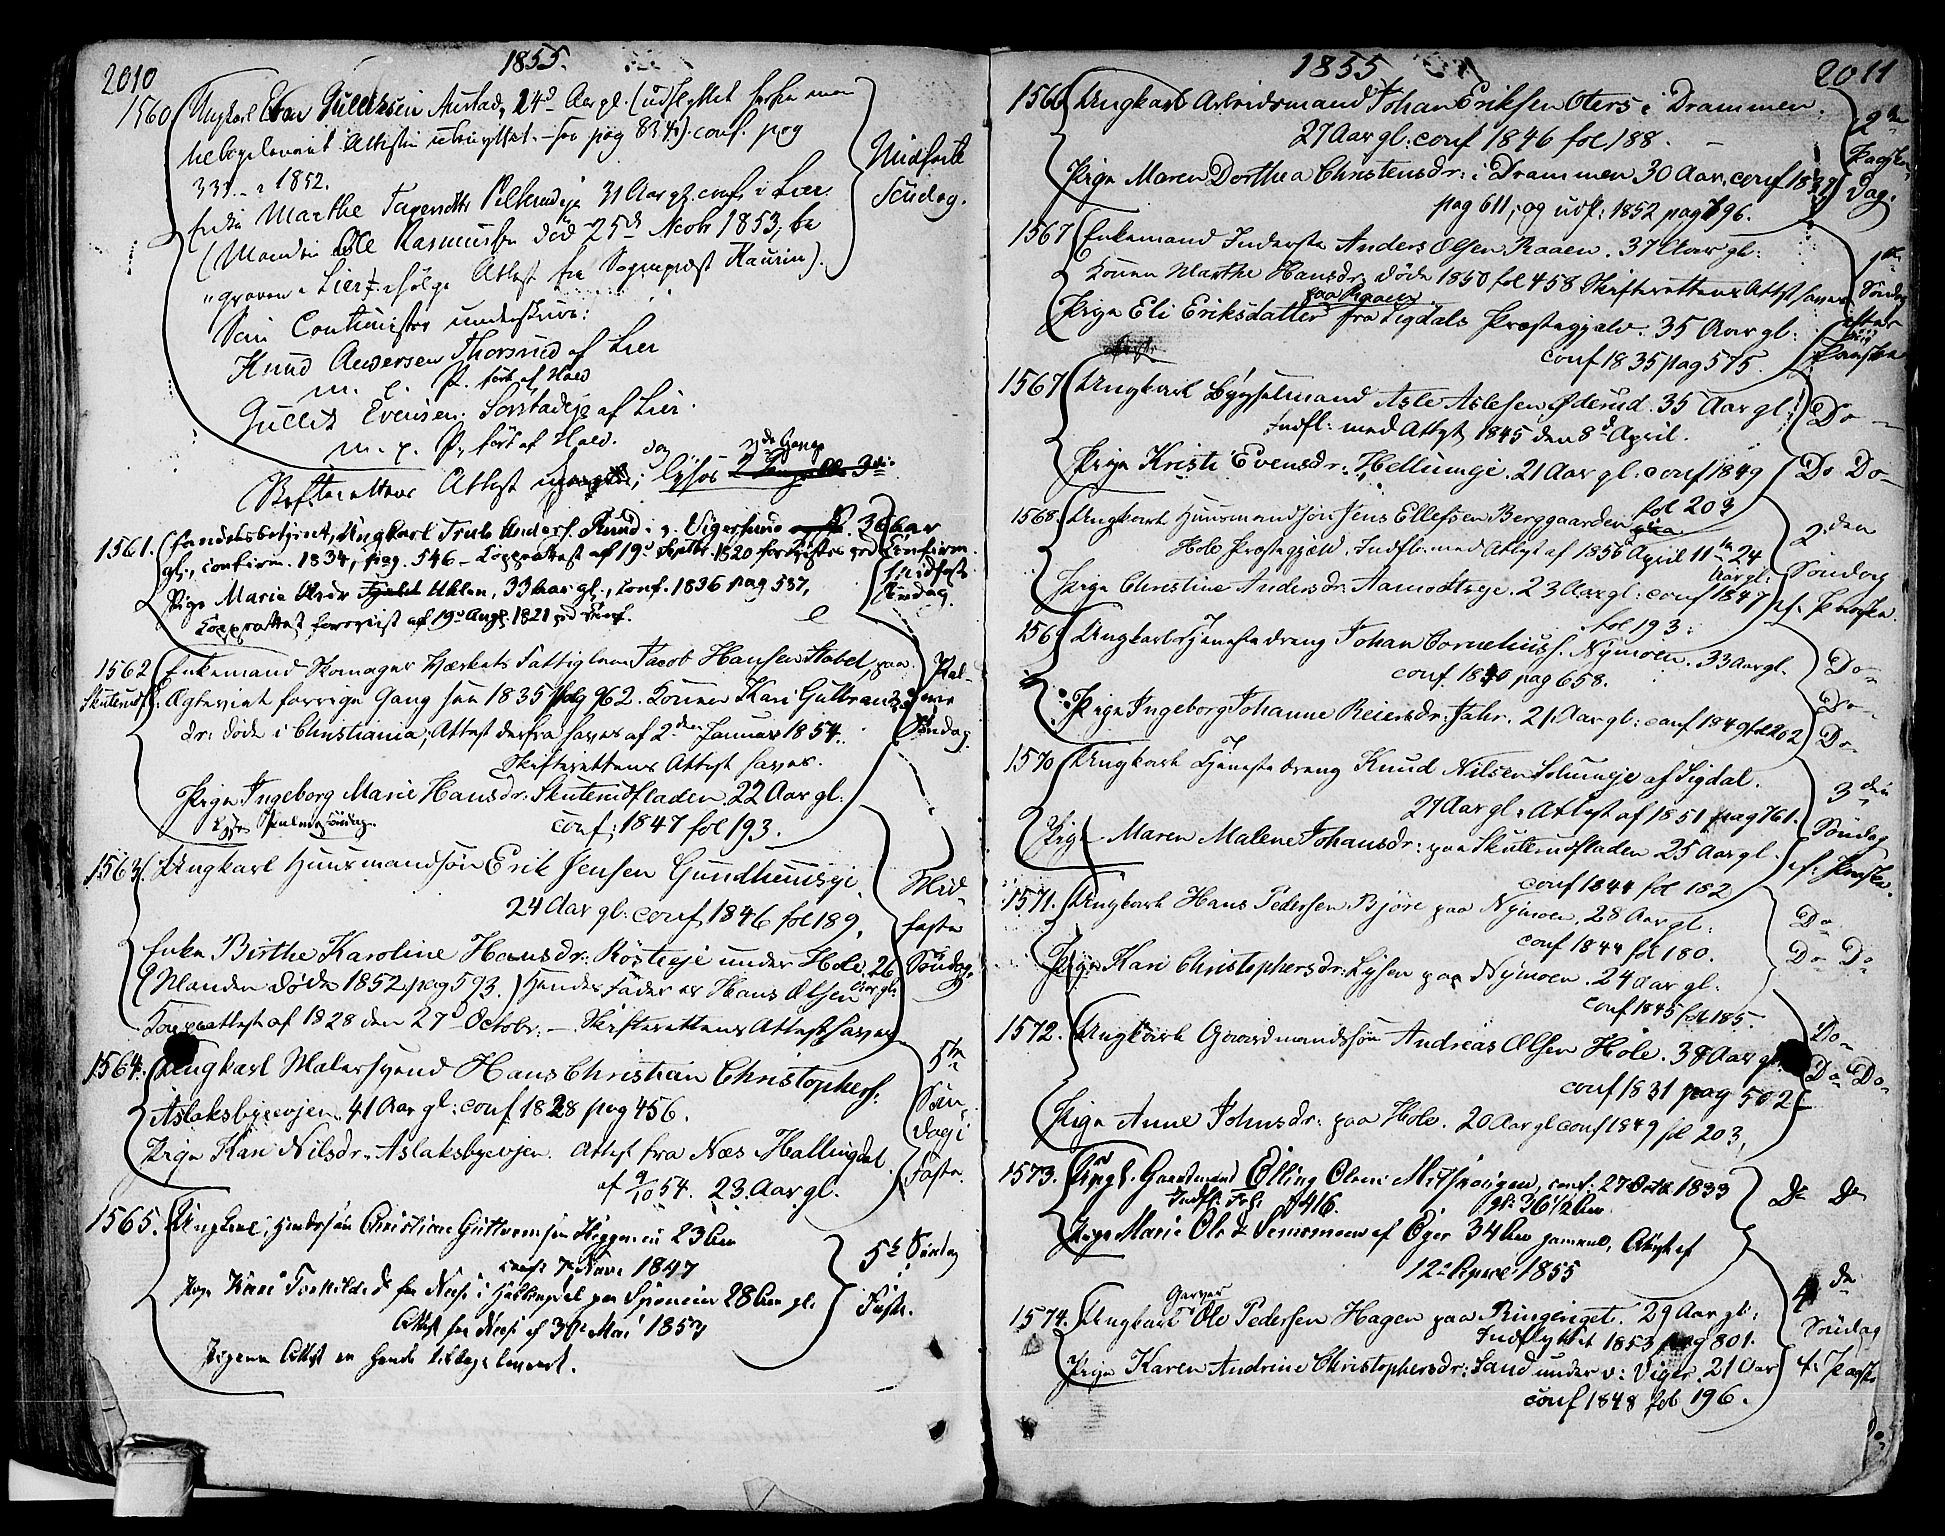 2010
1855.
1560 Ungkarl Even Gullicksen Austad, 24 Aar gl. (udflyttet
Attestn udnyttet – see pag 834). conf. pag
333 1852.
Enke Marthe 31 Aar gl. conf. i Lier
(Manden Ole Rasmussen død 25de Novbr 1853, be
"graven i Lier ifølge Attest fra Sogneprest Kaurin).
Som underskrive:
Knud Andersen Thorsrud af Lier
m. p. P. ført af Hald
Gullik Evensen Sørstadeje af Lier.
m. p. P. ført af Hald.
Skifterettens Attest lyses 2de Gange
Midfaste
Søndag.
1561. Ungkarl Truls Anders. Ruud i v. Vigersund 36 Aar
gl., confirm. 1834, pag. 546 – Koppeattest af 19d Septbr. 1820
Pige Marie Uhlen, 33 Aar gl., conf. 1836 pag 587,
Koppeattest foreviist af 19d Aug. 1821
Midfaste
Søndag.
1562 Enkemand Skomager Jacob Hansen Stabel, paa
Skuterudfl. Ægteviet forrige Gang see 1835 pag 962. Konen Kari Gulbrands
dr: døde i Christiania, Attest derfra haves af 2den Januar 1854.
Skifterettens Attest haves.
Pige Ingeborg Marie Hansdr: Skuterudfladen. 22 Aar gl:
Lyses Palmesøndag.
conf: 1847 fol 193.
Palme
Søndag
1563. Ungkarl Huusmandsøn Erik Jensen Gundhuuseje
24 Aar gl: conf 1846 fol 189.
Enke Birthe Karoline Hansdr: Røsteeje under Hole. 26 Aar gl:
(Manden døde 1852, pag 593.) Hendes Fader er Hans Olsen
Koppeattest af 1828 den 27d Octobr: – Skifterettens Attest haves
Mid-
faste
Søndag.
1564. Ungkarl Malersvend Hans Christian Christophers:
Aslaksbyevjen. 41 Aar gl: conf 1828 pag 456.
Pige Kari Nilsdr. Aslaksbyevjen. Attest fra Næs i Hallingdal.
af 9/10 54. 23 Aar gl.
5te
Søn-
dag i
Faste.
1565. Ungkarl, Christian Guttormsen 23 Aar
conf 7 Nov. 1847
Pige Kari Torkildsd fra Næs i Hallingdal paa 28 Aar gl.
Attest fra Næs af 30 Mai 1853
Pigens Attest er hende tilbageleveret.
5te Søndag
i
Faste.
1855
2011
1566 Ungkarl Arbeidsmand Johan Eriksen Oters i Drammen.
27 Aar gl: conf 1846 fol 188. –
Pige Maren Dorthea Christensdr: i Drammen 30 Aar, conf 1839
pag 611, og udfl: 1852 pag 796.
2den
Paaske-
Dag.
1567 Enkemand Inderste Anders Olsen Raaen. 37 Aar gl:
Konen Marthe Hansdr. døde 1850 fol 458 Skifterettens Attest haves
paa Raaen
Pige Eli Eriksdatter fra Sigdals Præstegjeld. 35 Aar gl:
conf 1835 pag 575.
1ste
Søndag
efter
Paaske
1567 Ungkarl Bygselmand Asle Aslesen Øderud. 35 Aar gl:
Indfl: med Attest 1845 den 8d April.
Pige Kristi Evensdr: Hellumeje. 21 Aar gl: conf 1849
fol 203
Do –
Do Do –
1568. Ungkarl Huusmandsøn Jens Ellefsen Berggaarden
Hole Præstegjeld. Indfl. med Attest af 1855 April 11te 24
Aar gl:
Pige Christine Andersdr: Aamodtseje. 23 Aar gl: conf 1847
fol 193:
2den
Søndag
ef: Paaske.
156 Ungkarl Tjenestedreng Johan Cornelius s. Nymoen. 33 Aar gl.
conf. 1840 pag 658.
Pige Ingeborg Johanne Reiersdr: Fahr. 21 Aar gl: conf 1849 fol 202
Do –
Do –
Do –
1570 Ungkarl Tjenestedreng Knud Nilsen Solumeje af Sigdal.
27 Aar gl. Attest af 1851 pag 761.
Pige Maren Malene Johansdr: paa Skuterudfladen 25 Aar gl.
conf 1844 fol 182
3die
Søndag
ef: Paaske.
1571. Ungkarl Hans Pedersen Bjøre paa Nymoen. 28 Aar gl:
conf 1844 fol 180.
Pige Kari Christophersdr: Lysen paa Nymoen. 24 Aar gl:
conf 1845 fol 185.
Do –
Do – Do –
1572. Ungkarl Gaardmandssøn Andreas Olsen Hole. 38 Aar gl:
conf 1831 pag 502
Pige Anne Johnsdr: paa Hole. 20 Aar gl conf 1849 fol 203.
Do –
Do – Do –
1573. Ungk. Gaardmand Elling Olsen, conf. 27 Octb 1833
Indfl. Fol. 416. gl. 36 1/2 Aar
Pige Marie Olsd af Eger 34 Aar gammel, Attest af
12te April 1855
Do Do
1574. Ungkarl Garver Ole Pedersen Hagen paa Ringeriget. 29 Aar gl:
Indflyttet 1853 pag 801.
Pige Karen Andrine Christophersdr: Sand under v: Viger. 21 Aar
conf 1848 fol 196.
4de
Søndag
f: Paaske